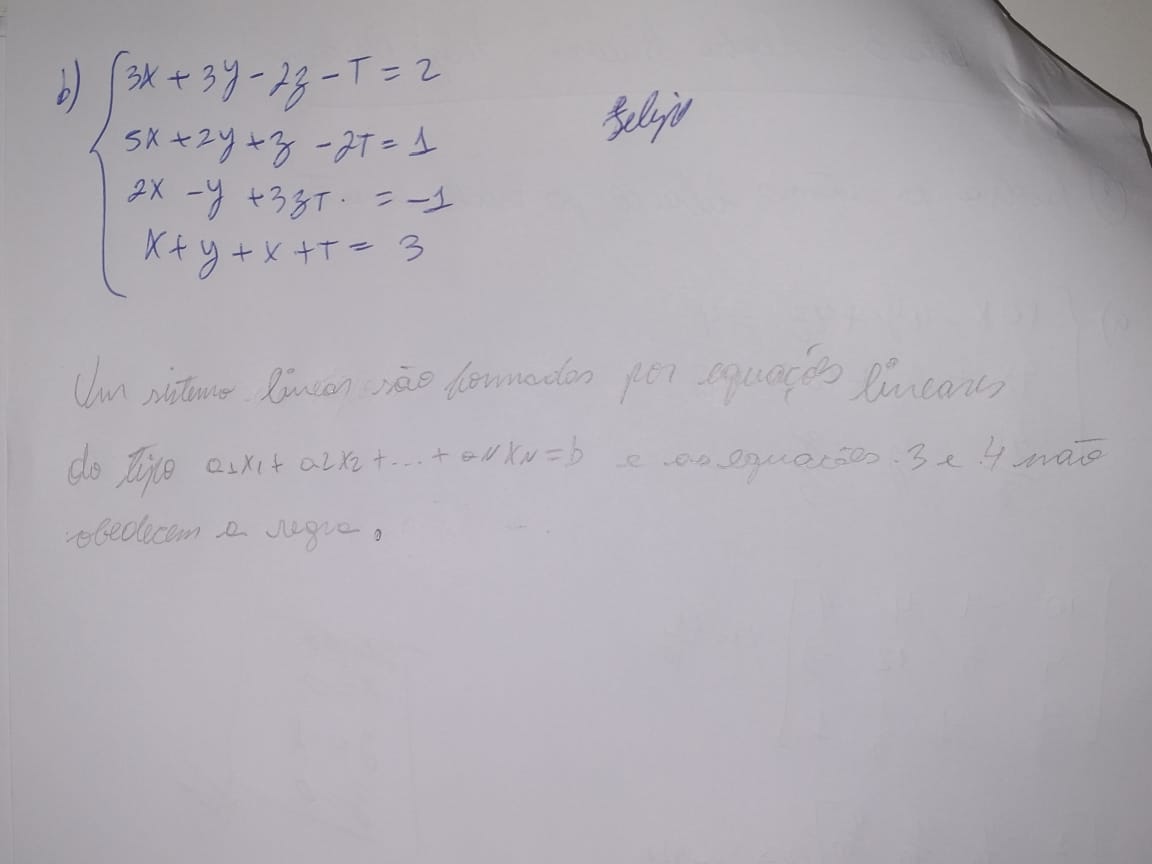 b) { 3x + 3y - 2z - T = 2
Felipe
5x + 2y + z - 2T = 1
2x - y + 3zT. = -1
x + y + x + T = 3
Um sistema linear são formados por equações lineares
do tipo a1x1 + a2x2 + ... + aNxN = b e as equações 3 e 4 não
obedecem a regra.